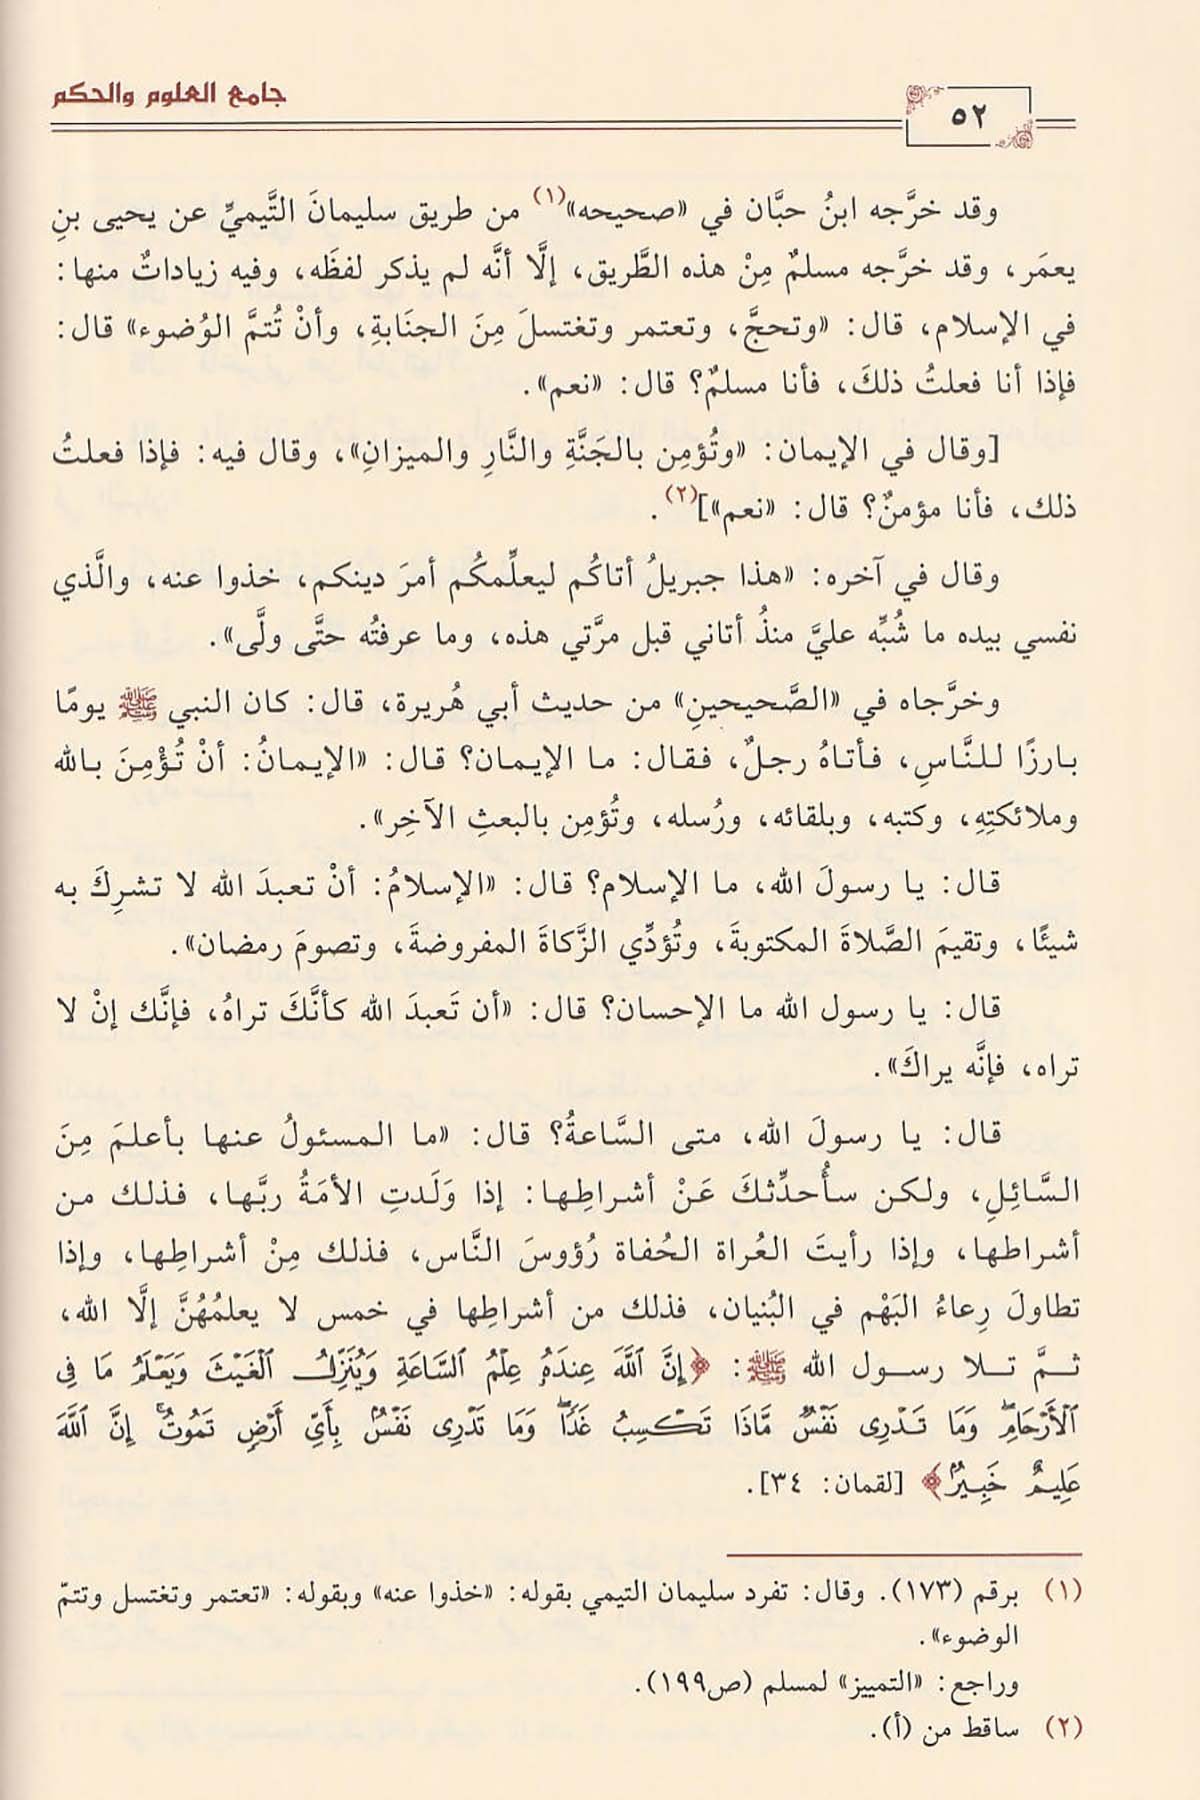 جامع العلوم والحكم
٥٢
وقد خرَّجه ابنُ حبَّان في «صحيحه»(١) من طريق سليمانَ التَّيميِّ عن يحيى بنِ
يعمَر، وقد خرَّجه مسلمٌ مِنْ هذه الطَّريق، إلَّا أنَّه لم يذكر لفظَه، وفيه زياداتٌ منها:
في الإسلام، قال: «وتحجَّ، وتعتمر وتغتسلَ مِنَ الجنَابةِ، وأنْ تُتمَّ الوُضوء» قال:
فإذا أنا فعلتُ ذلكَ، فأنا مسلمٌ؟ قال: «نعم».
[وقال في الإيمان: «وتُؤمِن بالجَنَّةِ والنَّارِ والميزانِ»، وقال فيه: فإذا فعلتُ
ذلك، فأنا مؤمنٌ؟ قال: «نعم»](٢).
وقال في آخره: «هذا جبريلُ أتاكُم ليعلِّمكُم أمرَ دينكم، خذوا عنه، والَّذي
نفسي بيده ما شُبِّه عليَّ منذُ أتاني قبل مرَّتي هذه، وما عرفتُه حتَّى ولَّى».
وخرَّجاه في «الصَّحيحينِ» من حديث أبي هُريرة، قال: كان النبي ﷺ يومًا
بارزًا للنَّاسِ، فأتاهُ رجلٌ، فقال: ما الإيمان؟ قال: «الإيمانُ: أنْ تُؤْمِنَ بالله
وملائكتِهِ، وكتبه، وبلقائه، ورُسله، وتُؤمِن بالبعثِ الآخِر».
قال: يا رسولَ الله، ما الإسلام؟ قال: «الإسلامُ: أنْ تعبدَ الله لا تشرِكَ به
شيئًا، وتقيمَ الصَّلاةَ المكتوبةَ، وتُؤدِّي الزَّكاةَ المفروضةَ، وتصومَ رمضان».
قال: يا رسول الله ما الإحسان؟ قال: «أن تَعبدَ الله كأنَّكَ تراهُ، فإنَّك إنْ لا
تراه، فإنَّه يراكَ».
قال: يا رسولَ الله، متى السَّاعةُ؟ قال: «ما المسئولُ عنها بأعلمَ مِنَ
السَّائِلِ، ولكن سأُحدِّثكَ عَنْ أشراطِها: إذا وَلَدتِ الأمَةُ ربَّها، فذلك من
أشراطها، وإذا رأيتَ العُراة الحُفاة رُؤوسَ النَّاس، فذلك مِنْ أشراطِها، وإذا
تطاولَ رِعاءُ البَهْم في البُنيان، فذلك من أشراطِها في خمس لا يعلمُهُنَّ إلَّا الله،
ثمَّ تلا رسول الله ﷺ: ﴿إِنَّ ٱللَّهَ عِندَهُۥ عِلْمُ ٱلسَّاعَةِ وَيُنَزِّلُ ٱلْغَيْثَ وَيَعْلَمُ مَا فِى
ٱلْأَرْحَامِۖ وَمَا تَدْرِى نَفْسٌ مَّاذَا تَكْسِبُ غَدًاۖ وَمَا تَدْرِى نَفْسٌۢ بِأَىِّ أَرْضٍ تَمُوتُۚ إِنَّ ٱللَّهَ
عَلِيمٌ خَبِيرٌۢ﴾ [لقمان: ٣٤].
(١) برقم (١٧٣). وقال: تفرد سليمان التيمي بقوله: «خذوا عنه» وبقوله: «تعتمر وتغتسل وتتمّ
الوضوء».
وراجع: «التمييز» لمسلم (ص١٩٩).
(٢) ساقط من (أ).